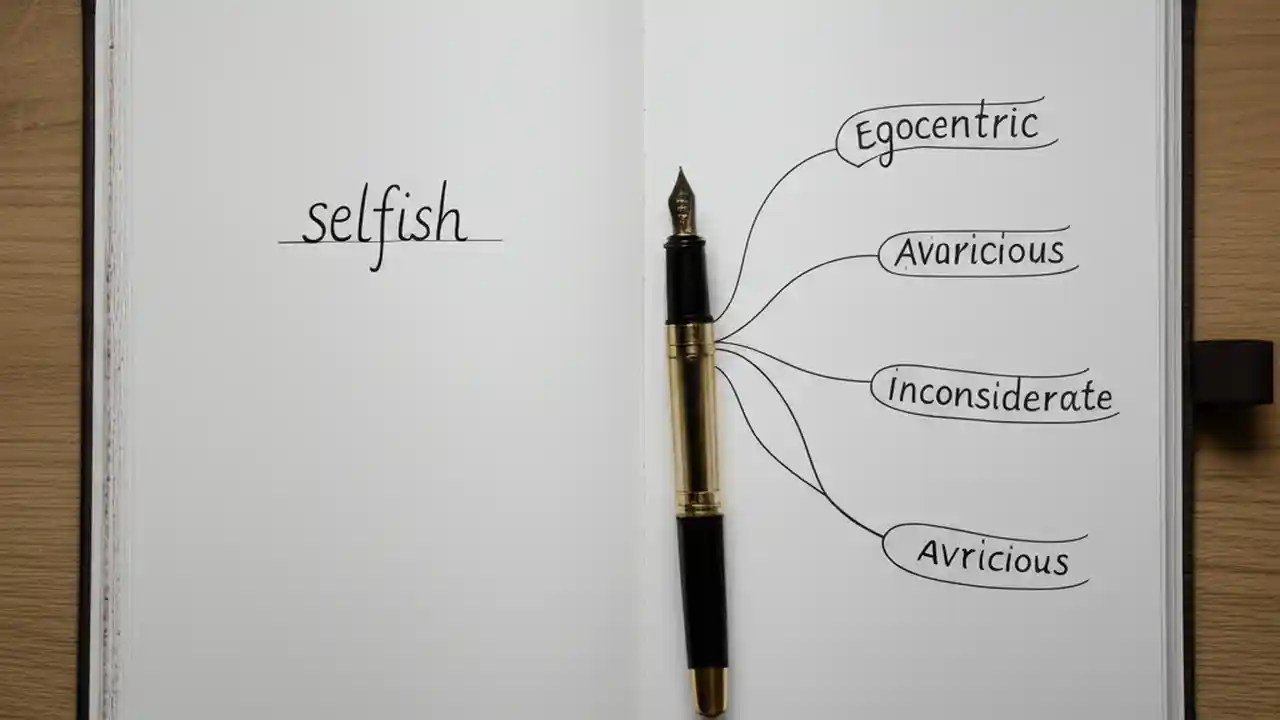 selfish
Egocentric
Avaricious
inconsiderate
Avricious